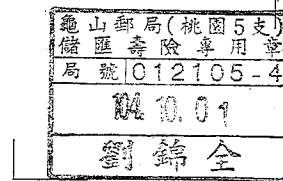 龜山郵局(桃園5支)
儲匯壽險專用章
局號012105-4
104.10.01
劉錦全